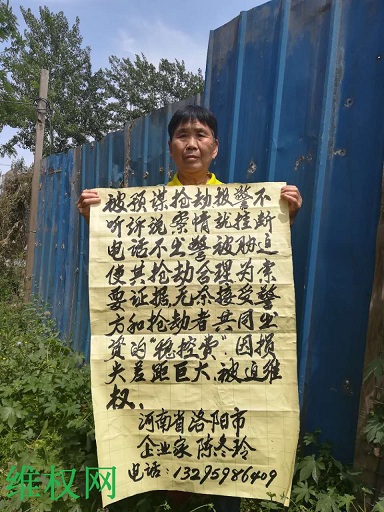 被预谋抢劫报警不
听诉说案情就挂断
电话不出警被胁迫
使其抢劫合理为索
要证据无奈接受警
方和抢劫者共同出
资的“稳控费”，因损
失差距巨大，被迫维
权。
河南省洛阳市
企业家 陈冬玲
电话：13295986409
维权网